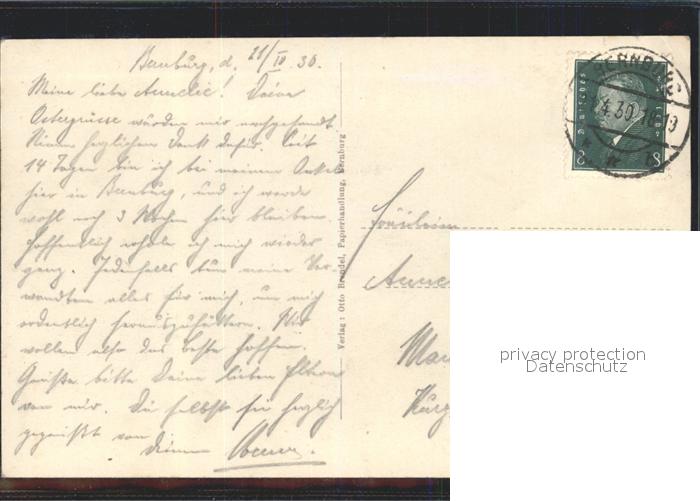 Bernburg, d. 21/IV 30.
Meine liebe Annelie! Deine
Ostergrüsse wurden mir nachgesandt.
Nimm herzlichen Dank dafür. Seit
14 Tagen bin ich bei meinem Onkel
hier in Bernburg, und ich werde
wohl noch 3 Wochen hier bleiben.
Hoffentlich erhole ich mich wieder
ganz. Jedenfalls tun meine Ver-
wandten alles für mich, um mich
ordentlich herauszufüttern. Wir
wollen also das beste hoffen.
Grüße bitte Deine lieben Eltern
von mir. Du selbst sei herzlich
gegrüßt von
Deinem
Verlag: Otto Brendel, Papierhandlung, Bernburg
BERNBURG
4.30
Deutsches
8 8
Fräulein
privacy protection
Datenschutz